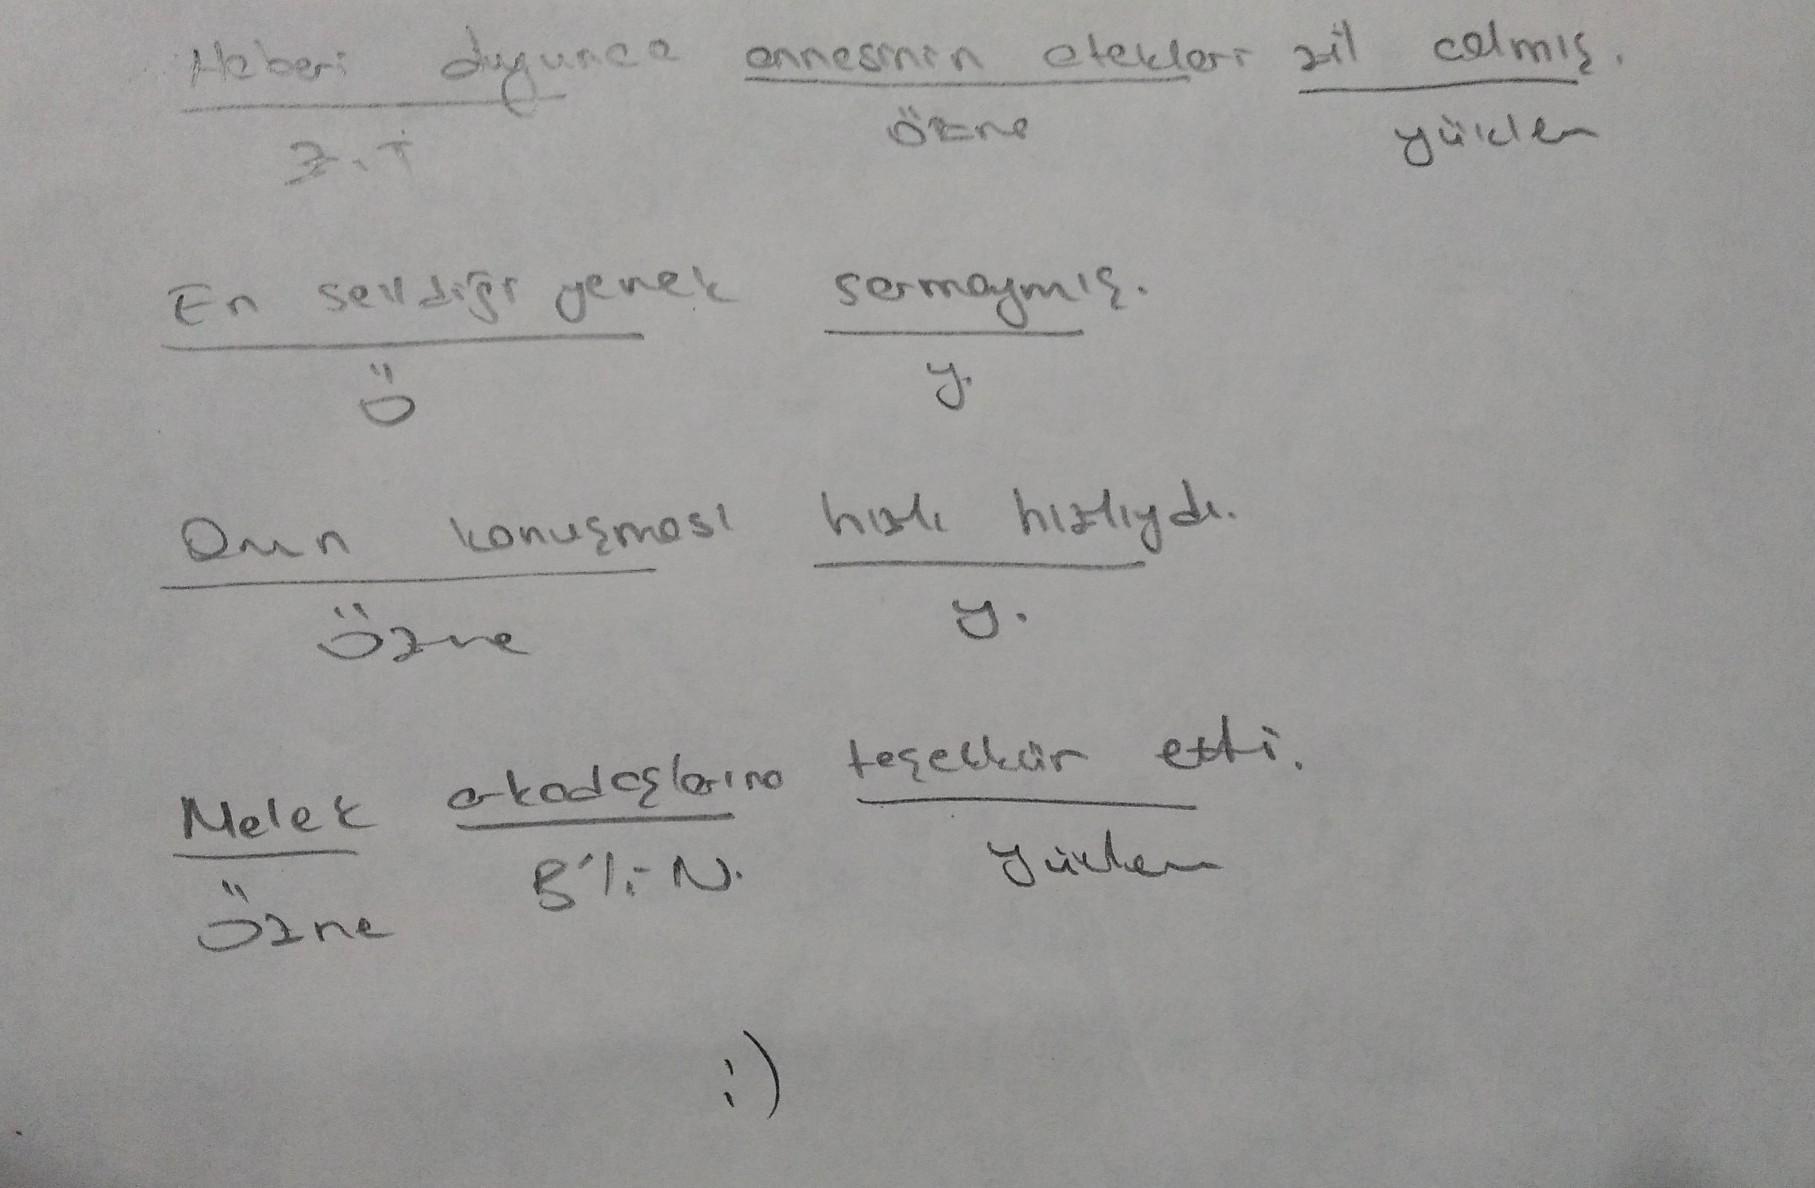 Haberi duyunca annesinin etekleri zil çalmış.
Z.T özne yüklem
En sevdiği yemek sarmaymış.
Ö y.
Onun konuşması hızlı hızlıydı.
Özne y.
Melek arkadaşlarına teşekkür etti.
Özne B'li N. yüklem
:)